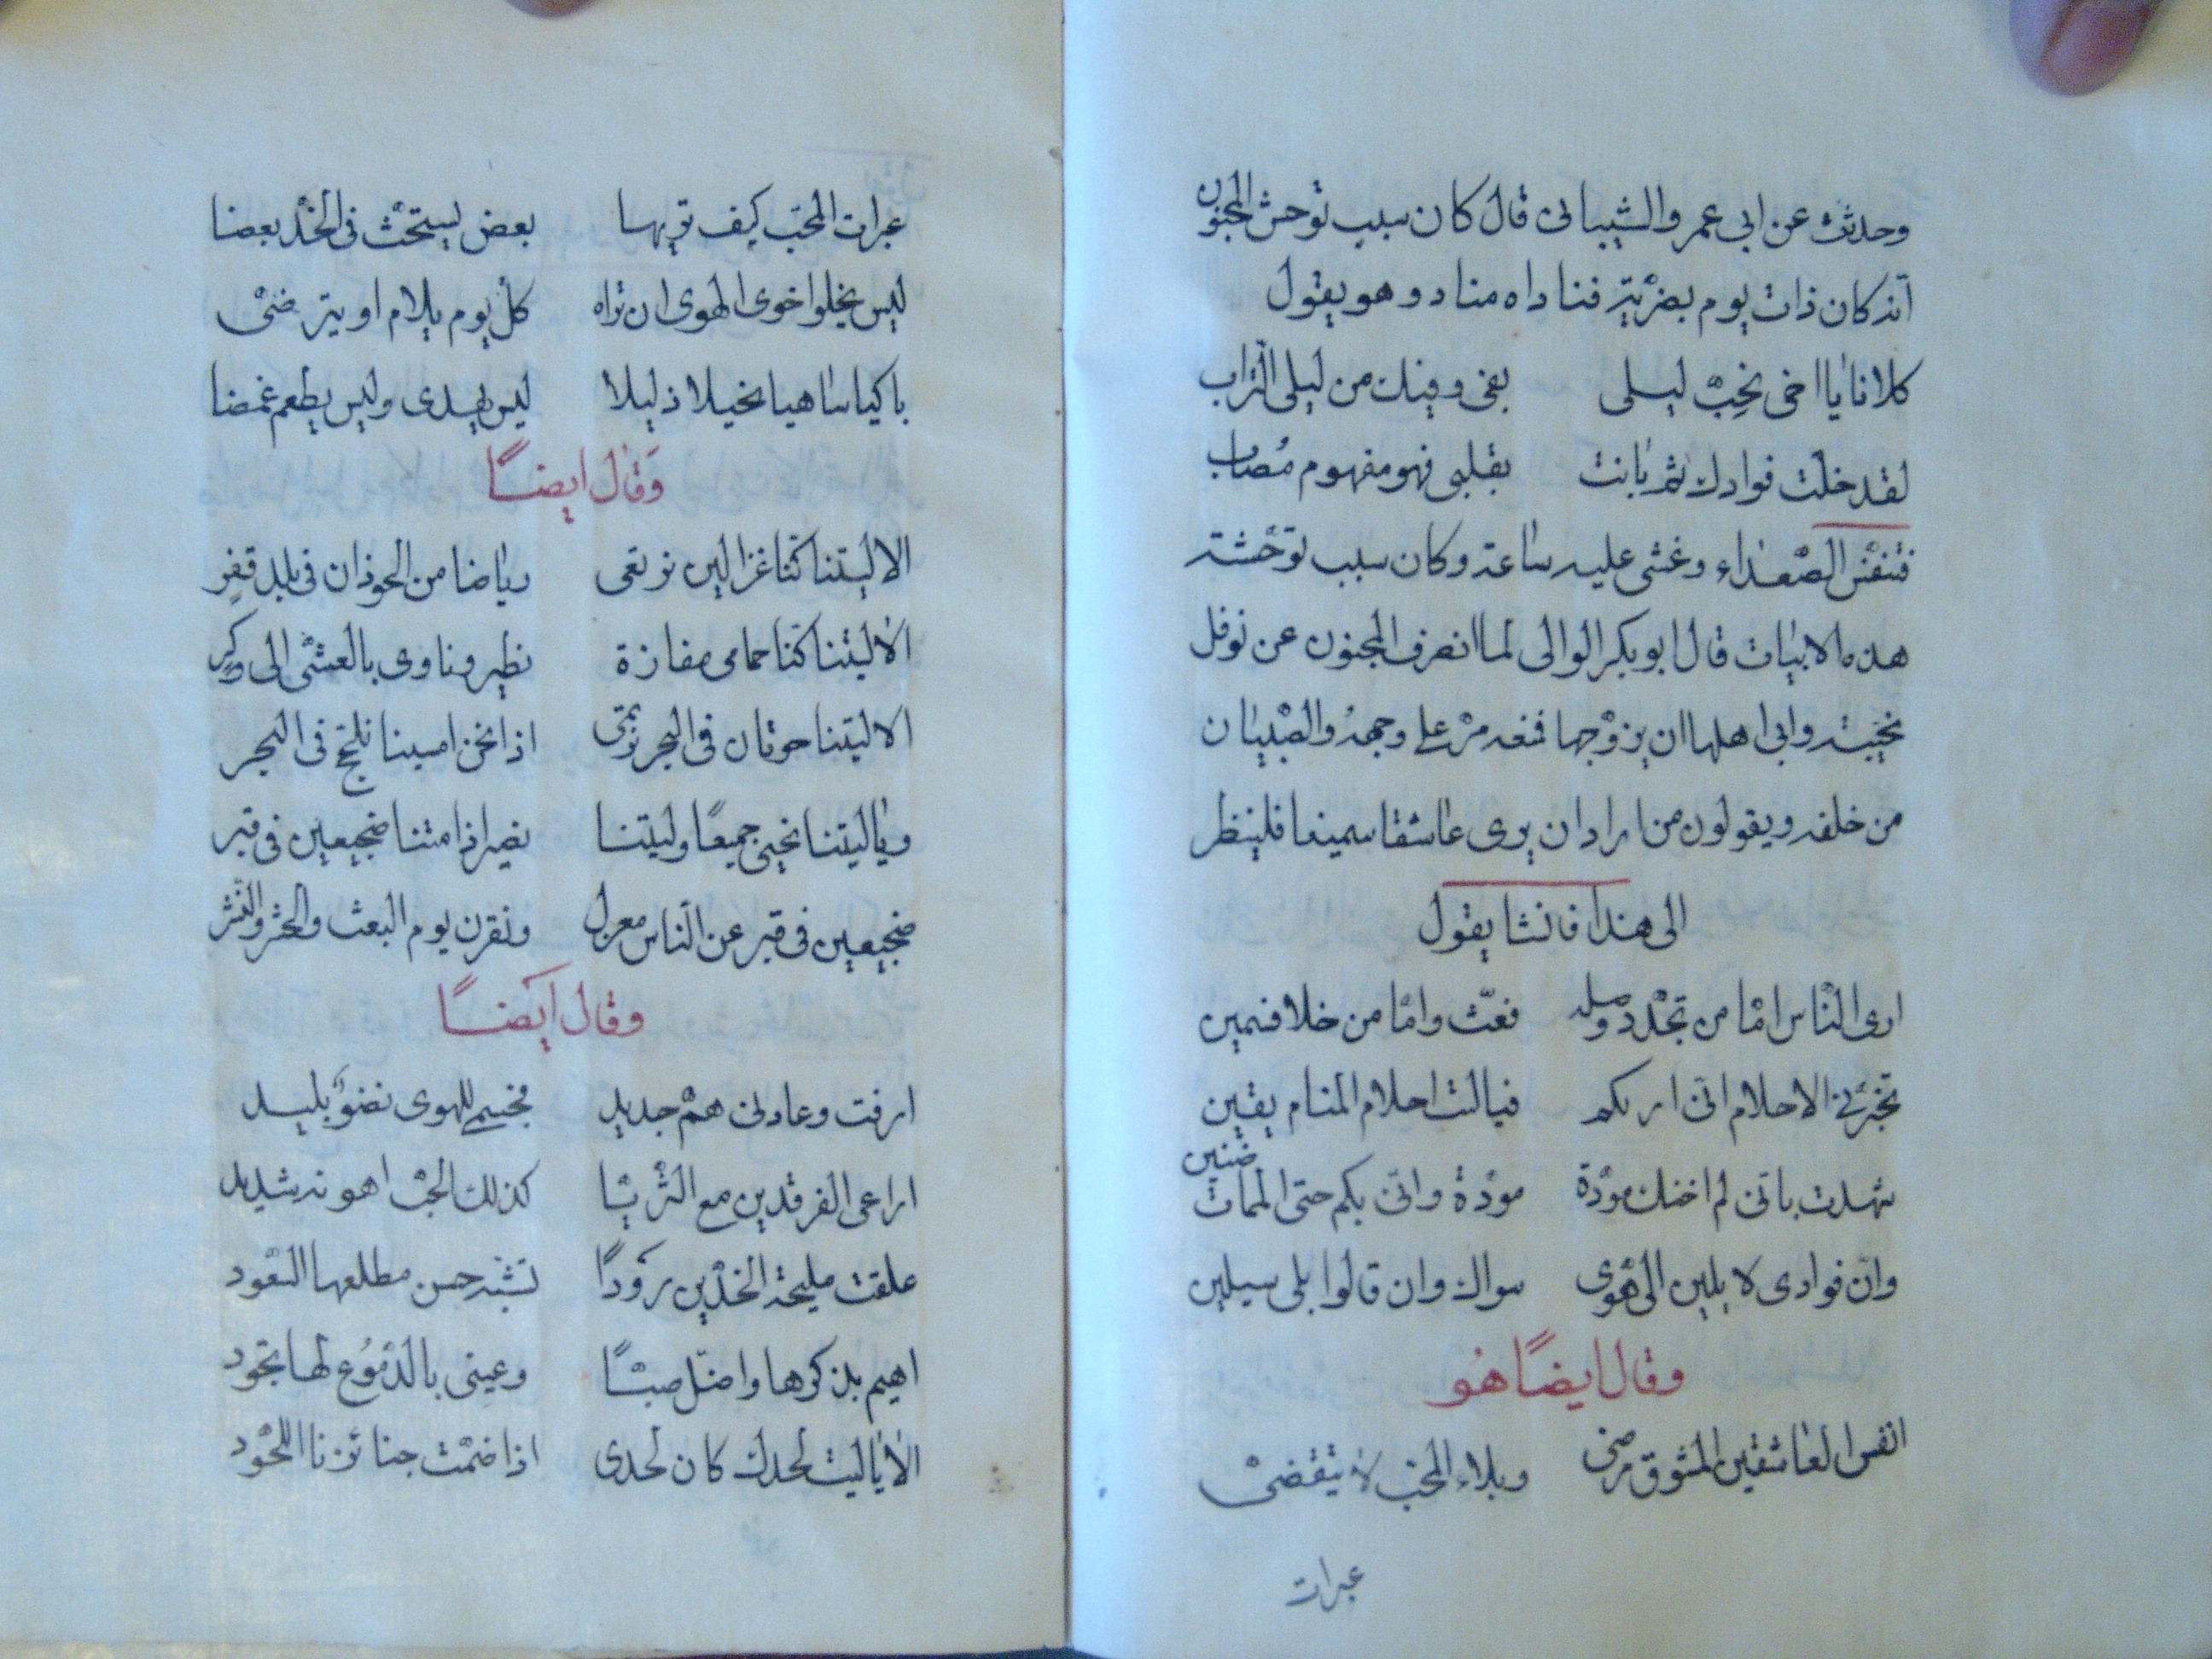 وحدثت عن ابى عمرو الشيبانى قال كان سبب توحش المجنون
انه كان ذات يوم بضريّة فناداه مناد وهو يقول
كلانا يا اخى يحبّ ليلى بفى وفيك من ليلى التراب
لقد خلّت فوادك ثمّ بانت بقلبى فهو مفهوم مُصاب
فتنفّس الصّعداء وغشى عليه ساعة وكان سبب توحّشة
هذه الابيات قال ابو بكر الوالى لما انصرف المجنون عن نوفل
بخيبته وابى اهلها ان يزوّجها فمنعه مرّ على وجههُ والصّبيان
من خلفه ويقولون من اراد ان يرى عاشقا سمينا فلينظر
الى هذا فانشا يقول
ارى النّاس امّا من تجدّد وصله فغثّ وامّا من خلا فسمين
تخبّرنى الاحلام انّى اريكم فيالت احلام المنام يقين
شهدت بانّى لم اخنك مودّة مودّة وانّى بكم حتى الممات ضنين
وانّ فوادى لا يلين الى هوى سواك وان قالوا بلى سيلين
وقال ايضًا هُو
انفس العاشقين للشوق مرضى وبلاء المحبّ لا يتقضى
عبرات
عبرات المحبّ كيف تريها بعض يستحثّ فى الخدّ بعضا
ليس يخلوا اخوى الهوى ان تراه كل يوم يلام او يترضّى
باكيا ساهيا نحيلا ذليلا ليس يهدى وليس يطعم غمضا
وَقال ايضًا
الا ليتنا كنّا غزالين نرتعى رياضا من الحوذان فى بلد قفرٍ
الا ليتنا كنّا حمامى مفازة نطير وناوى بالعشّى الى وكرٍ
الا ليتنا حوتان فى البحر نرتمى اذا نحن امسينا نلجّ فى البحر
ويا ليتنا نحيى جميعًا وليتنا نصير اذا متنا ضجيعين فى قبر
ضجيعين فى قبر عن النّاس معزل ونقرن يوم البعث والحشر والنّشر
وقال ايَضًا
ارقت وعادنى همّ جديد فجسمى للهوى نضوٌ بليد
اراعى الفرقدين مع الثّريّا كذلك الحبّ اهونه شديد
علقت مليحة الخدّين رؤدًا تشبّه حسن مطلعها السّعود
اهيم بذكرها واضلّ صبًّا وعينى بالدّموُع لها تجود
الا يا ليت لحدك كان لحدى اذا ضمّت جنائزنا اللحود